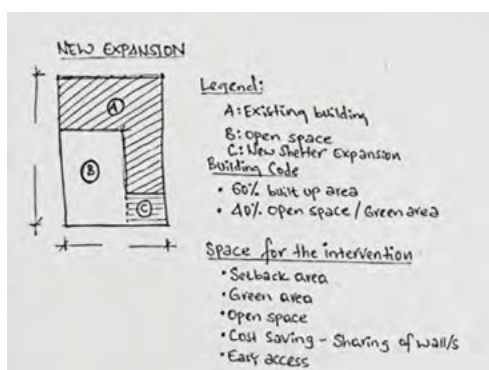 NEW EXPANSION
A
B
C
Legend:
A: Existing building
B: open space
C: New Shelter Expansion
Building Code
• 60% built up area
• 40% open space / Green area
Space for the intervention
• Setback area
• Green area
• Open space
• Cost saving - Sharing of wall/s
• Easy access